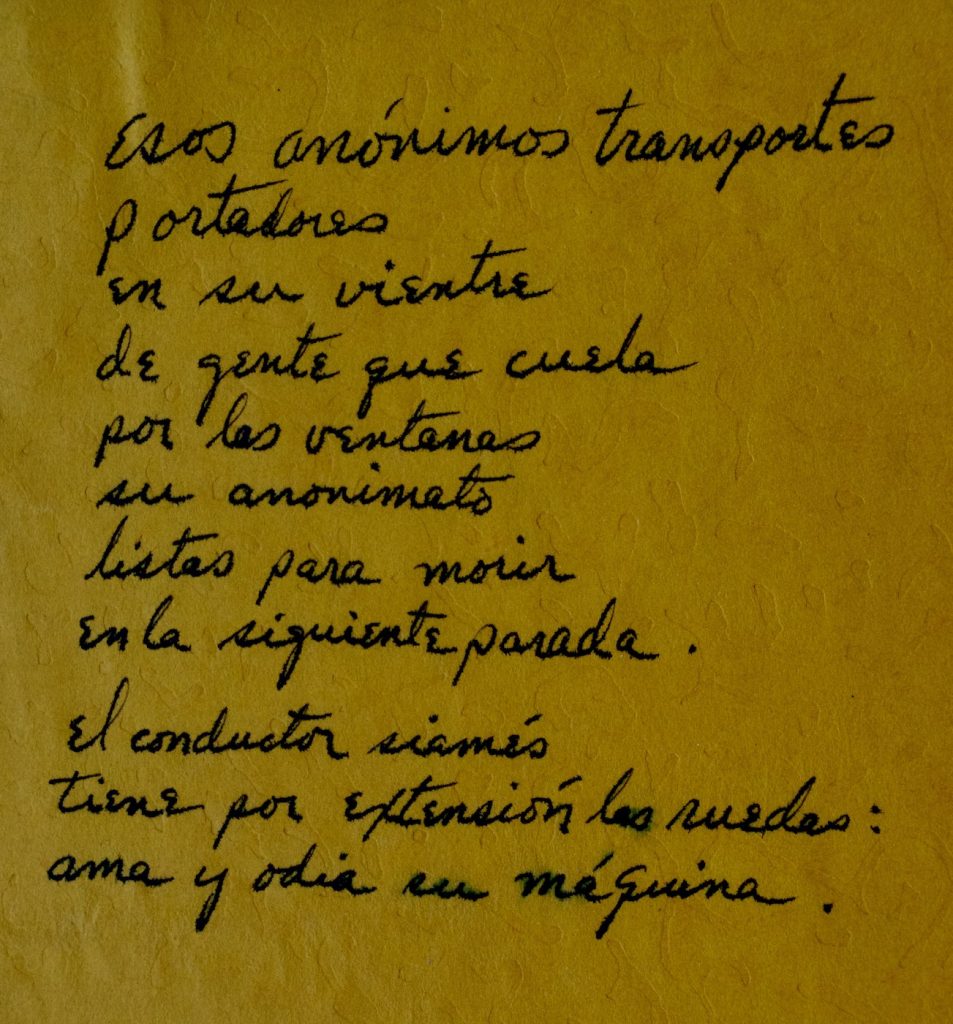 Esos anónimos transportes
portadores
en su vientre
de gente que cuela
por las ventanas
su anonimato
listas para morir
en la siguiente parada.
El conductor siamés
tiene por extensión las ruedas:
ama y odia su máquina.